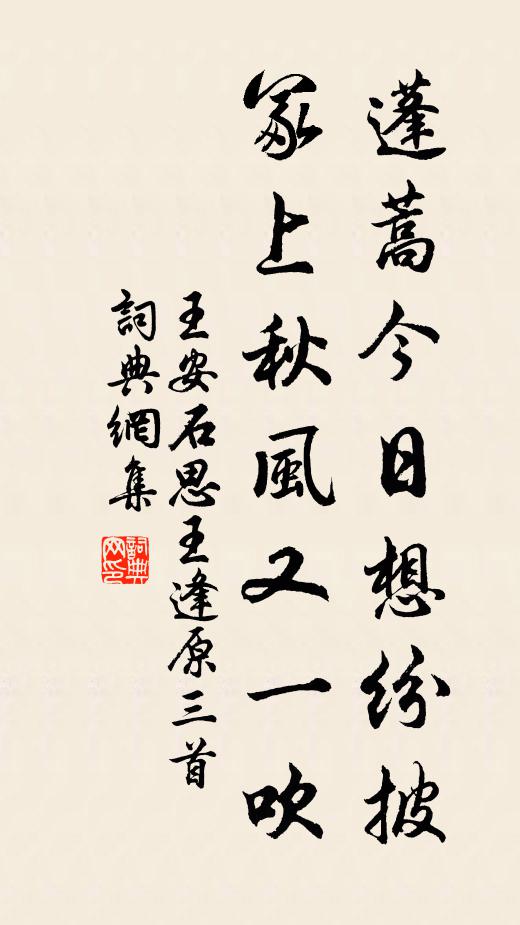 蓬蒿今日想紛披
冢上秋風又一吹
王安石思王逢原三首
詞典網集
詞典网印